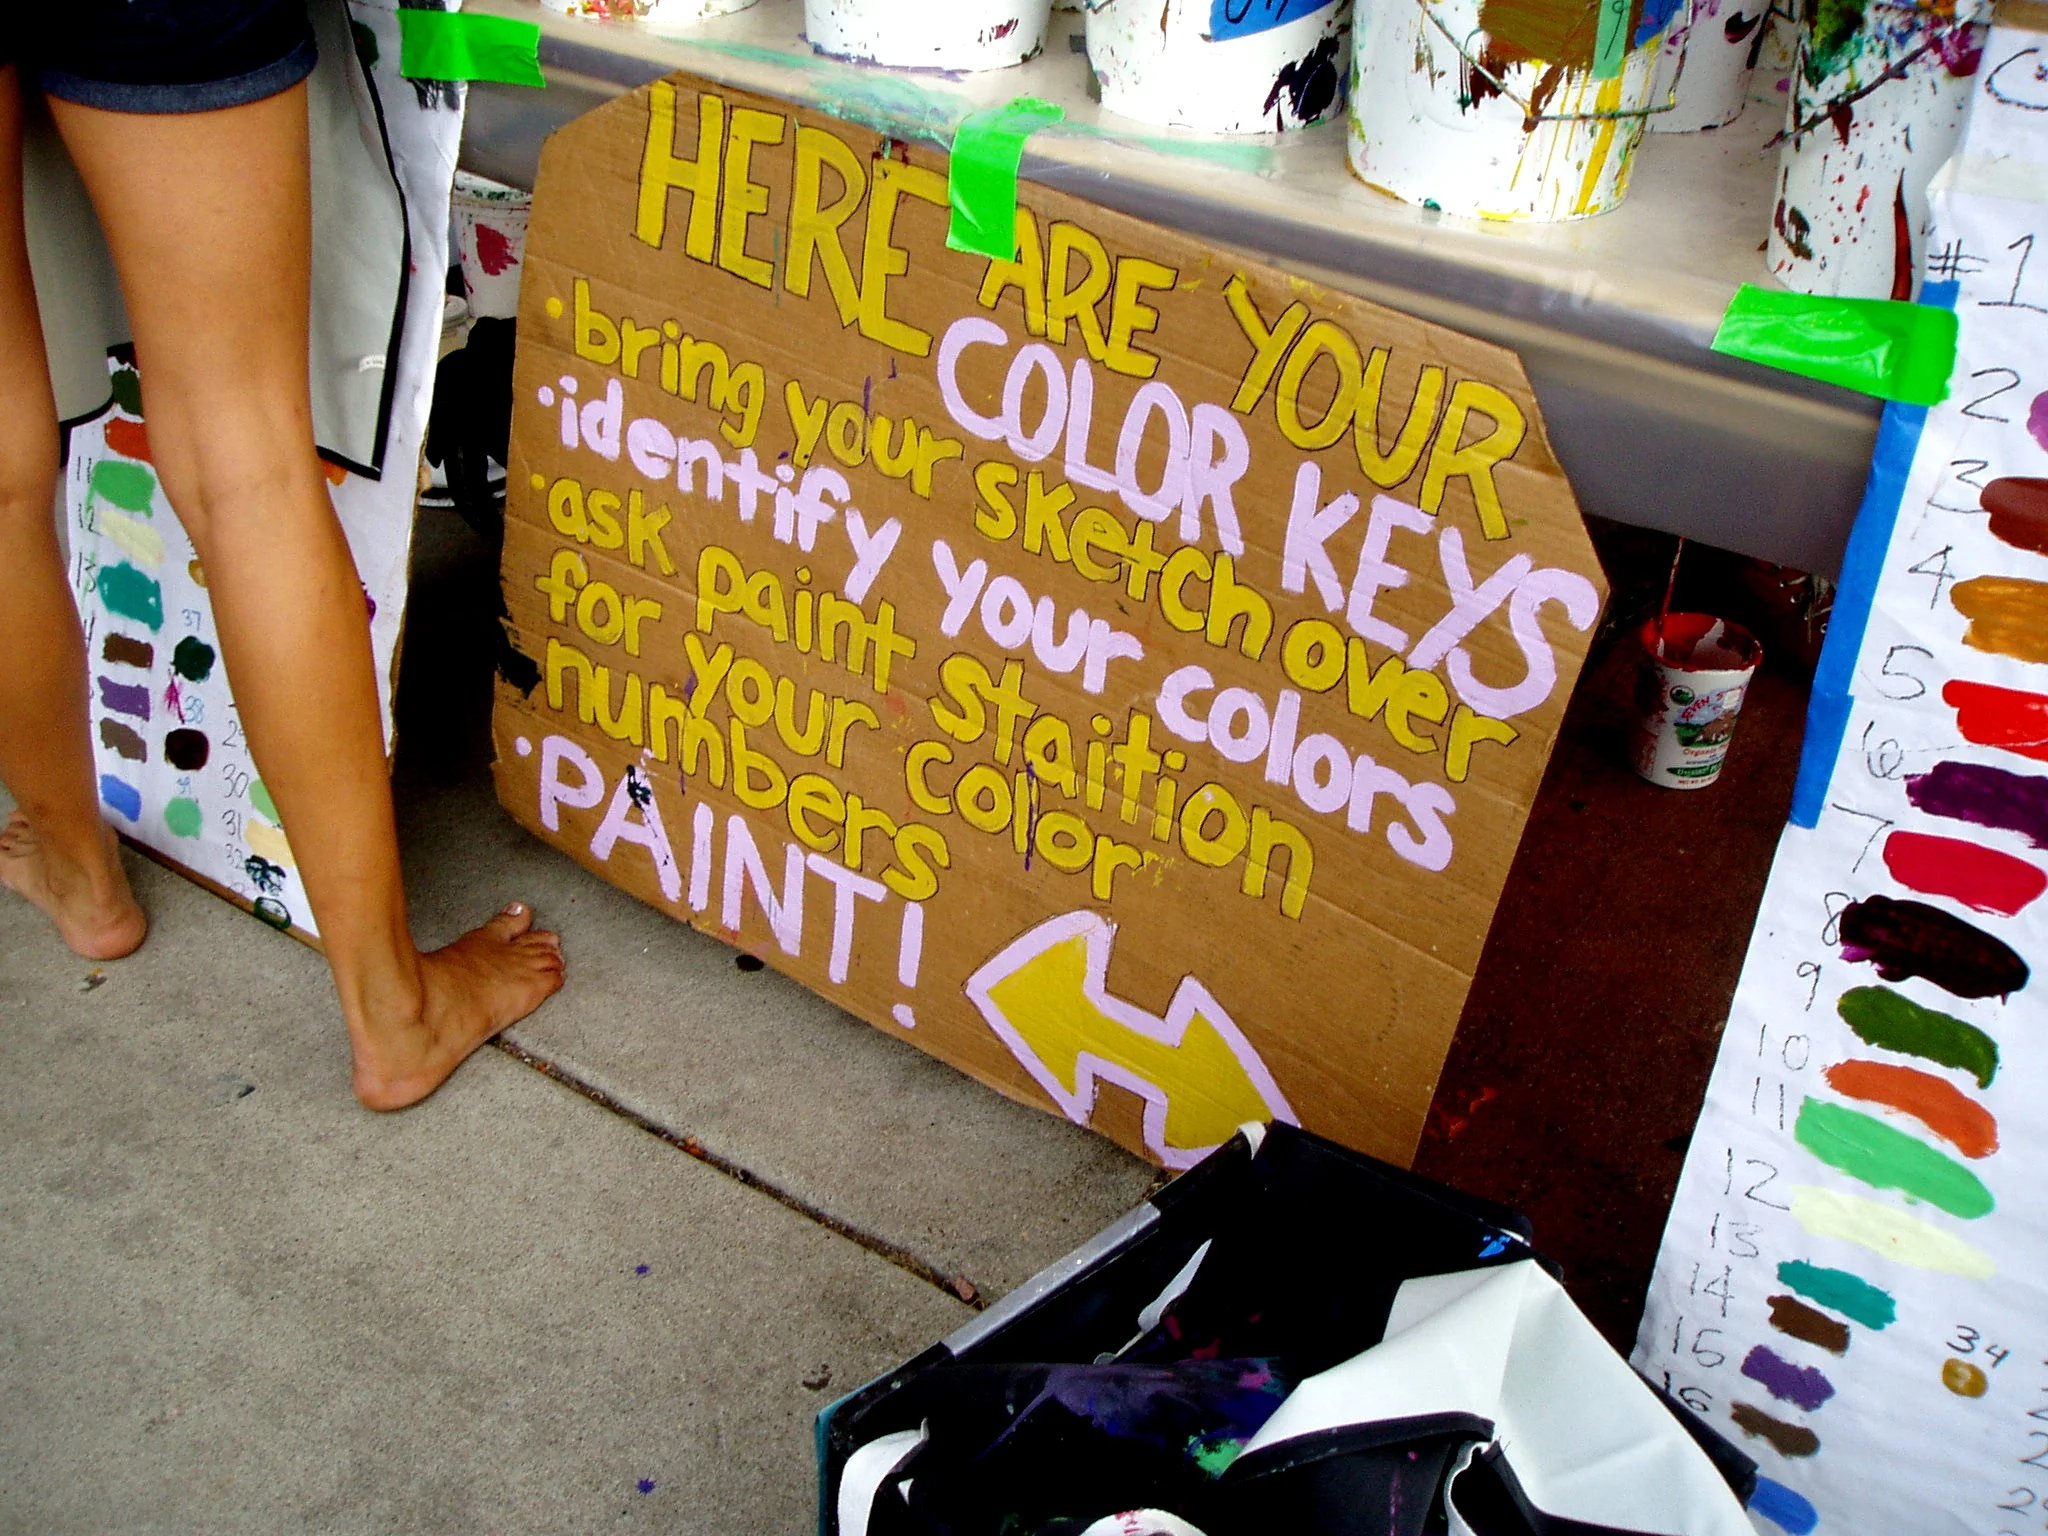 HERE ARE YOUR
COLOR KEYS
• bring your sketch over
• identify your colors
• ask paint staition
for your color
numbers
• PAINT!
# 1
2
3
4
5
6
7
8
9
10
11
12
13
14
15
16
34
11
12
13
37
38
30
31
32